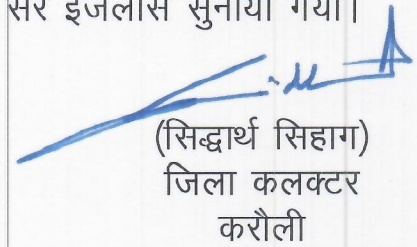 सरे इजलास सुनाया गया।
(सिद्धार्थ सिहाग)
जिला कलक्टर
करौली